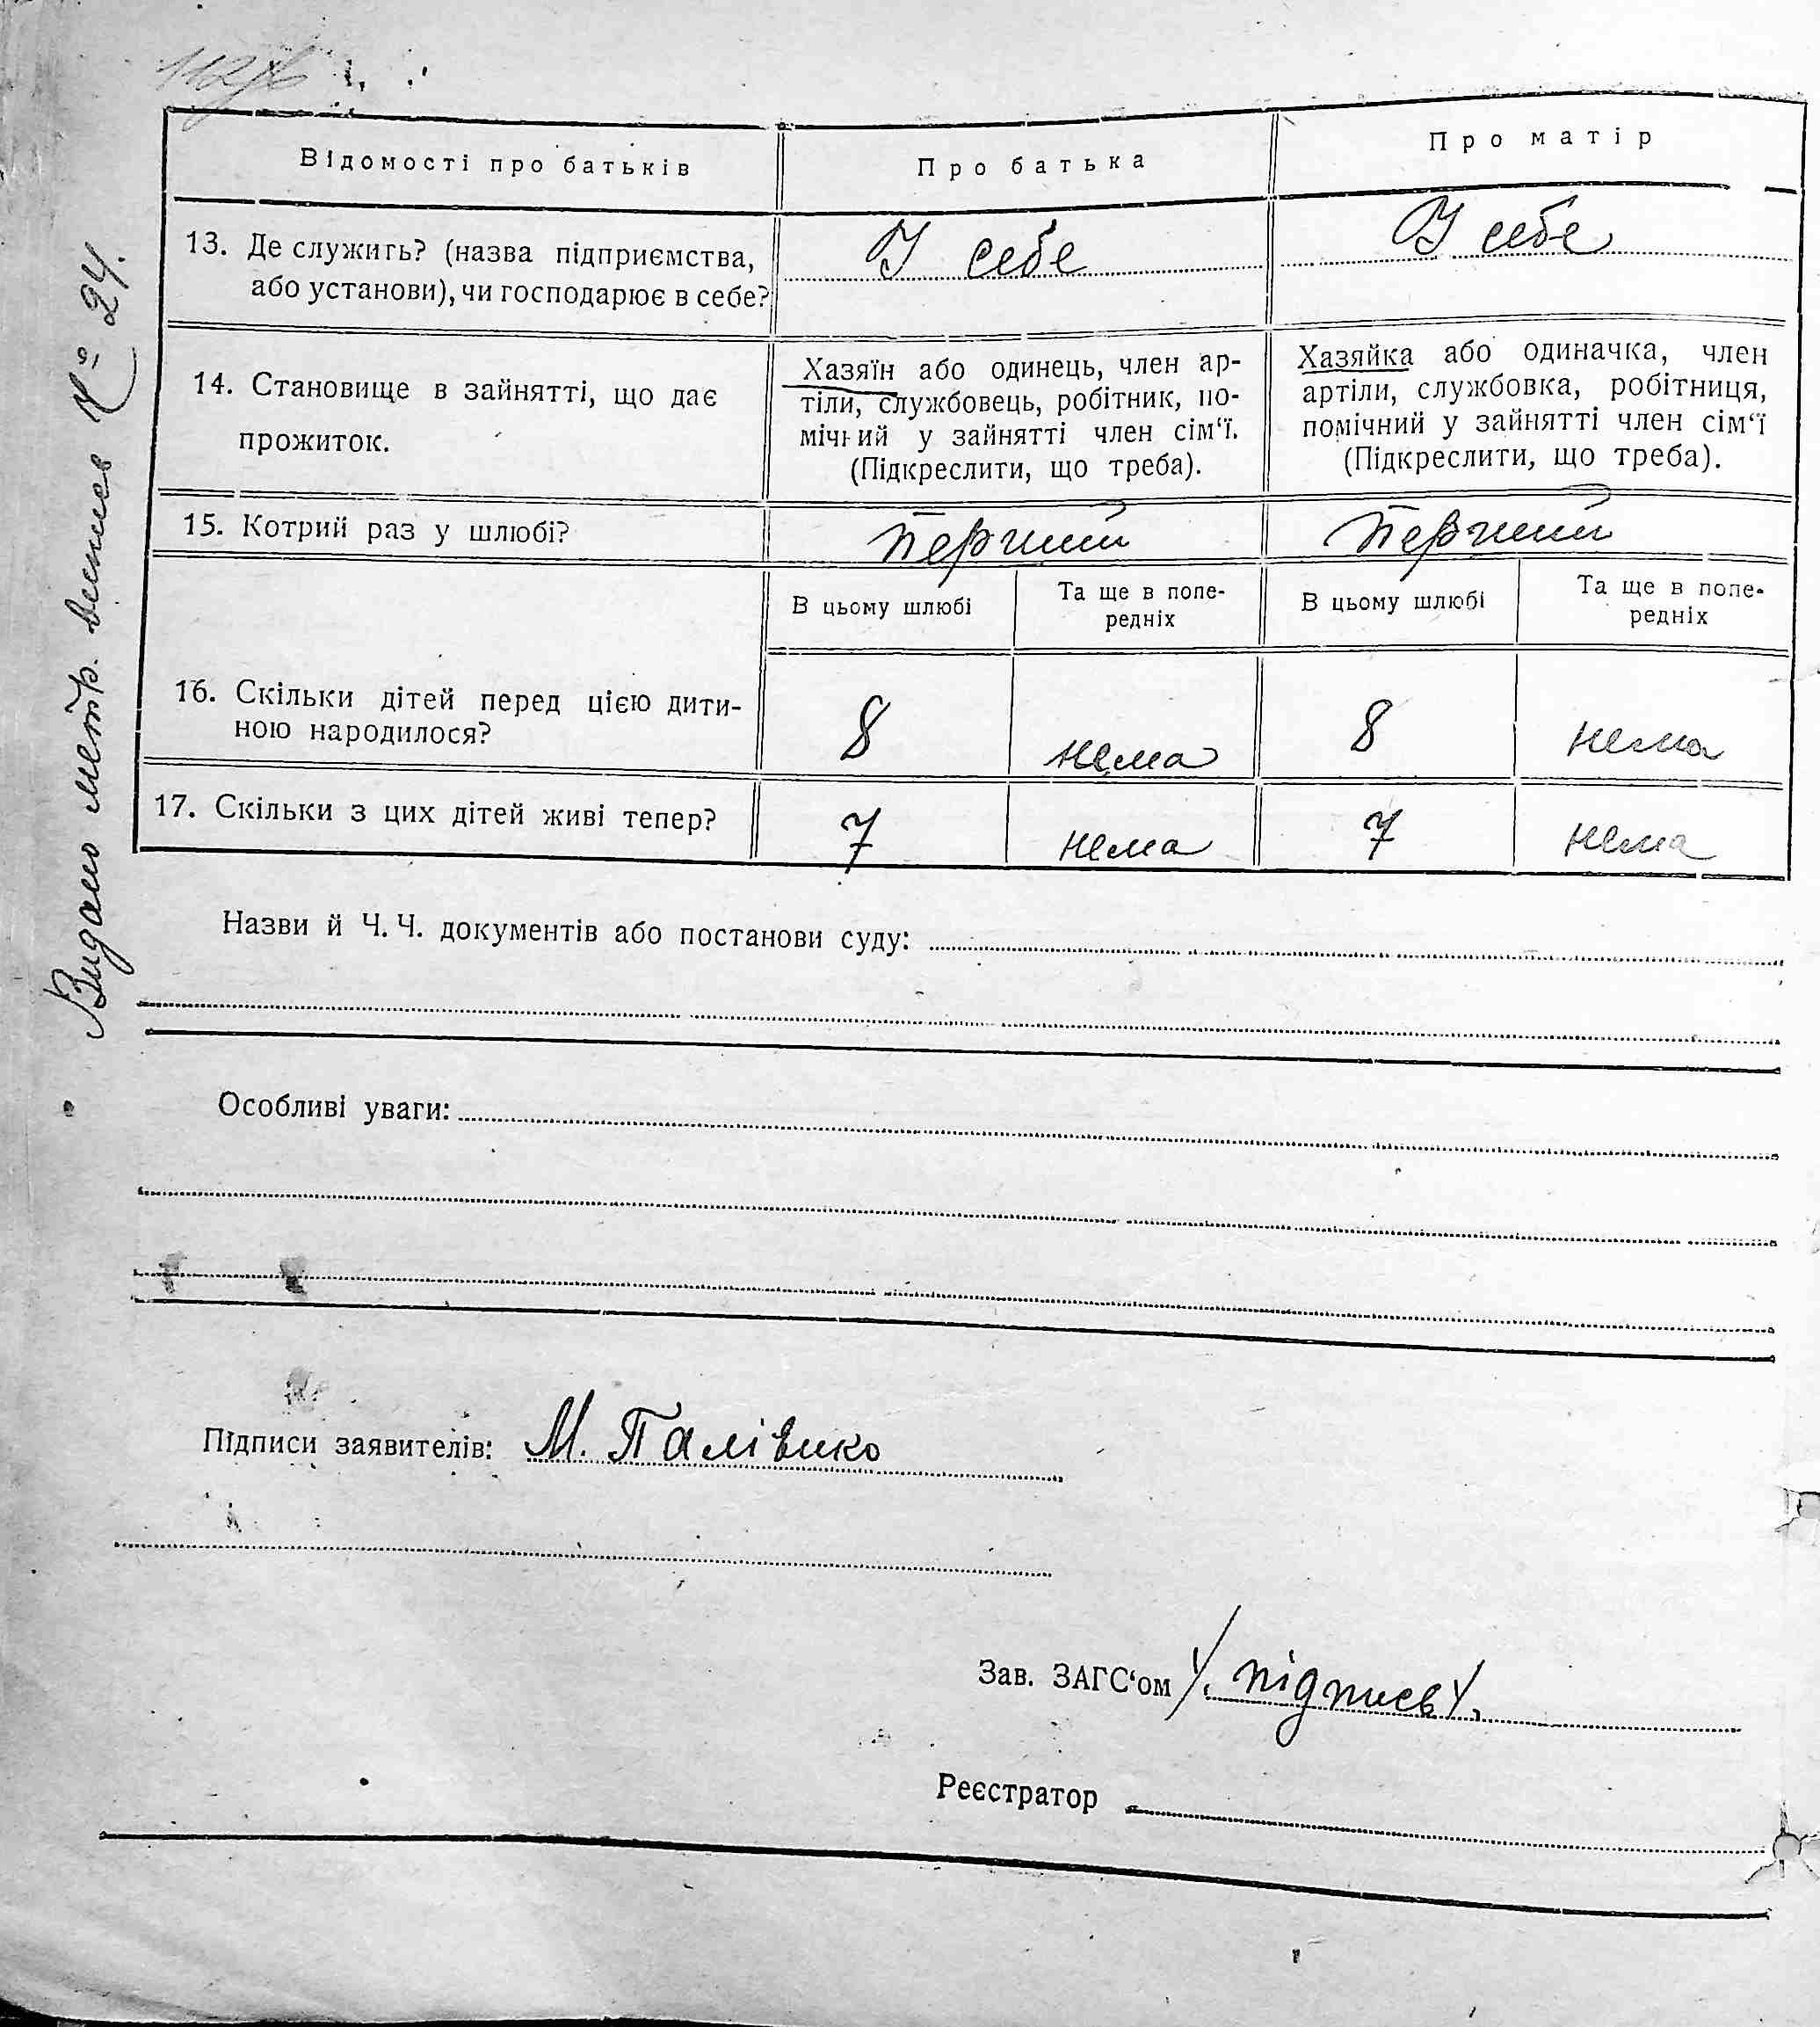 Відомості про батьків
Про батька
Про матір
13. Де служить? (назва підприємства,
або установи), чи господарює в себе?
У себе
У себе
14. Становище в зайнятті, що дає
прожиток.
Хазяїн або одинець, член ар-
тіли, службовець, робітник, по-
мічний у зайнятті член сім‘ї.
(Підкреслити, що треба).
Хазяйка або одиначка, член
артіли, службовка, робітниця,
помічний у зайнятті член сім‘ї
(Підкреслити, що треба).
15. Котрий раз у шлюбі?
Перший
Перший
В цьому шлюбі
Та ще в попе-
редніх
В цьому шлюбі
Та ще в попе-
редніх
16. Скільки дітей перед цією дити-
ною народилося?
8
нема
8
нема
17. Скільки з цих дітей живі тепер?
7
нема
7
нема
Назви й Ч. Ч. документів або постанови суду:
Особливі уваги:
Підписи заявителів: М. Палівико
Зав. ЗАГС‘ом /підпись/.
Реєстратор
Видано метр. виписв № 24.